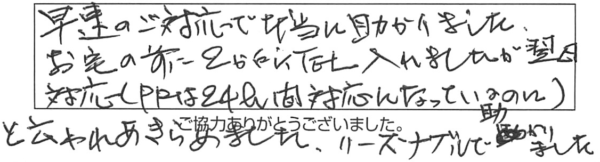 早速のご対応で本当に助かりました、
お宅の前に2台くらいTEL入れましたが翌日
対応(PPは24h間対応になっているのに)
と言われあきらめました、リーズナブルで助かりました
ご協力ありがとうございました。